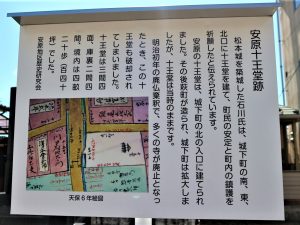 安原十王堂跡
松本城を築城した石川氏は、城下町の南、東、
北口に十王堂を建て、町民の安念と町内の鎮護を
祈願したと伝えられています。
安原の十王堂は、城下町の北の入口に建てられ
ました。その後萩町が造られ、城下町は拡大しま
したが、十王堂は当時のままです。
明治初年の廃仏毀釈で、多くの寺が廃止となっ
たとき、この十
王堂も破却され
てしまいました。
十王堂は三間四
面、庫裏二間四
間、境内は四畝
二十歩（百四十
坪）でした。
安原地区歴史研究会
天保6年絵図